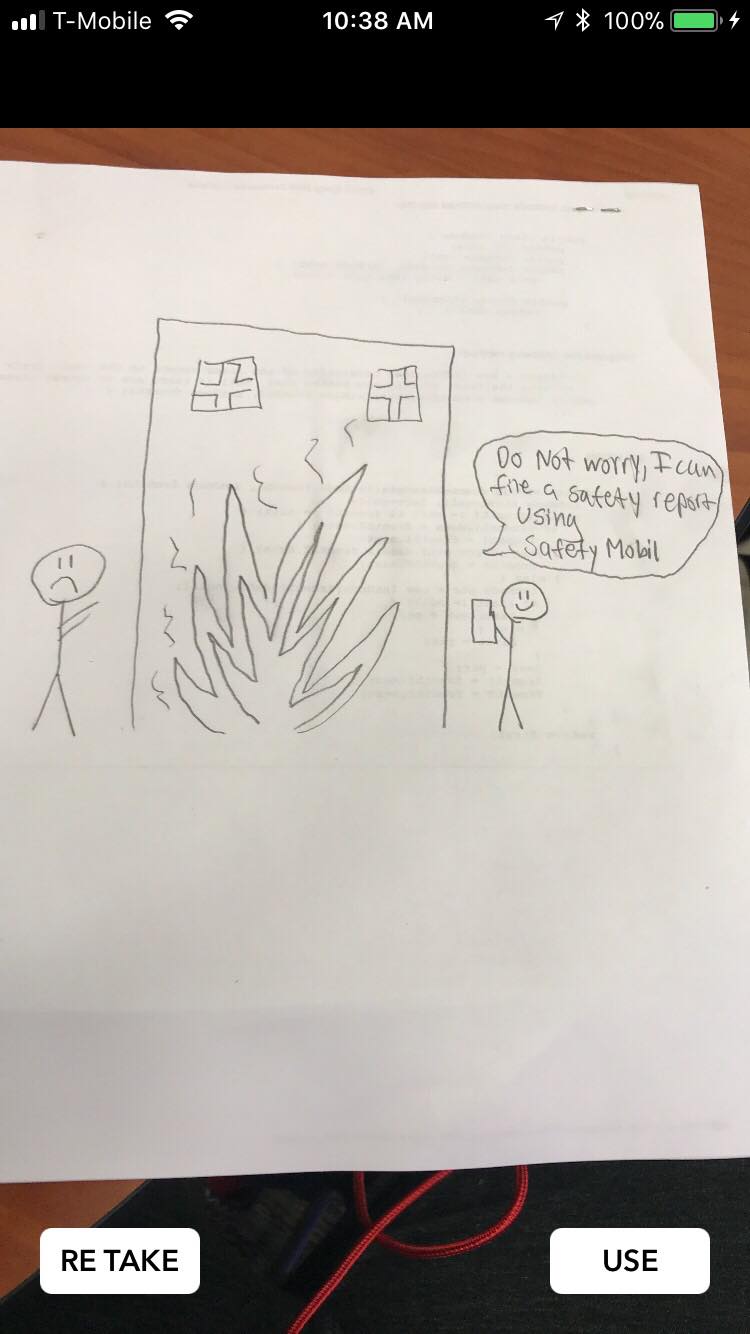 T-Mobile 10:38 AM 100%
Do Not worry, I can
file a safety report
using
Safety Mobil
RE TAKE USE